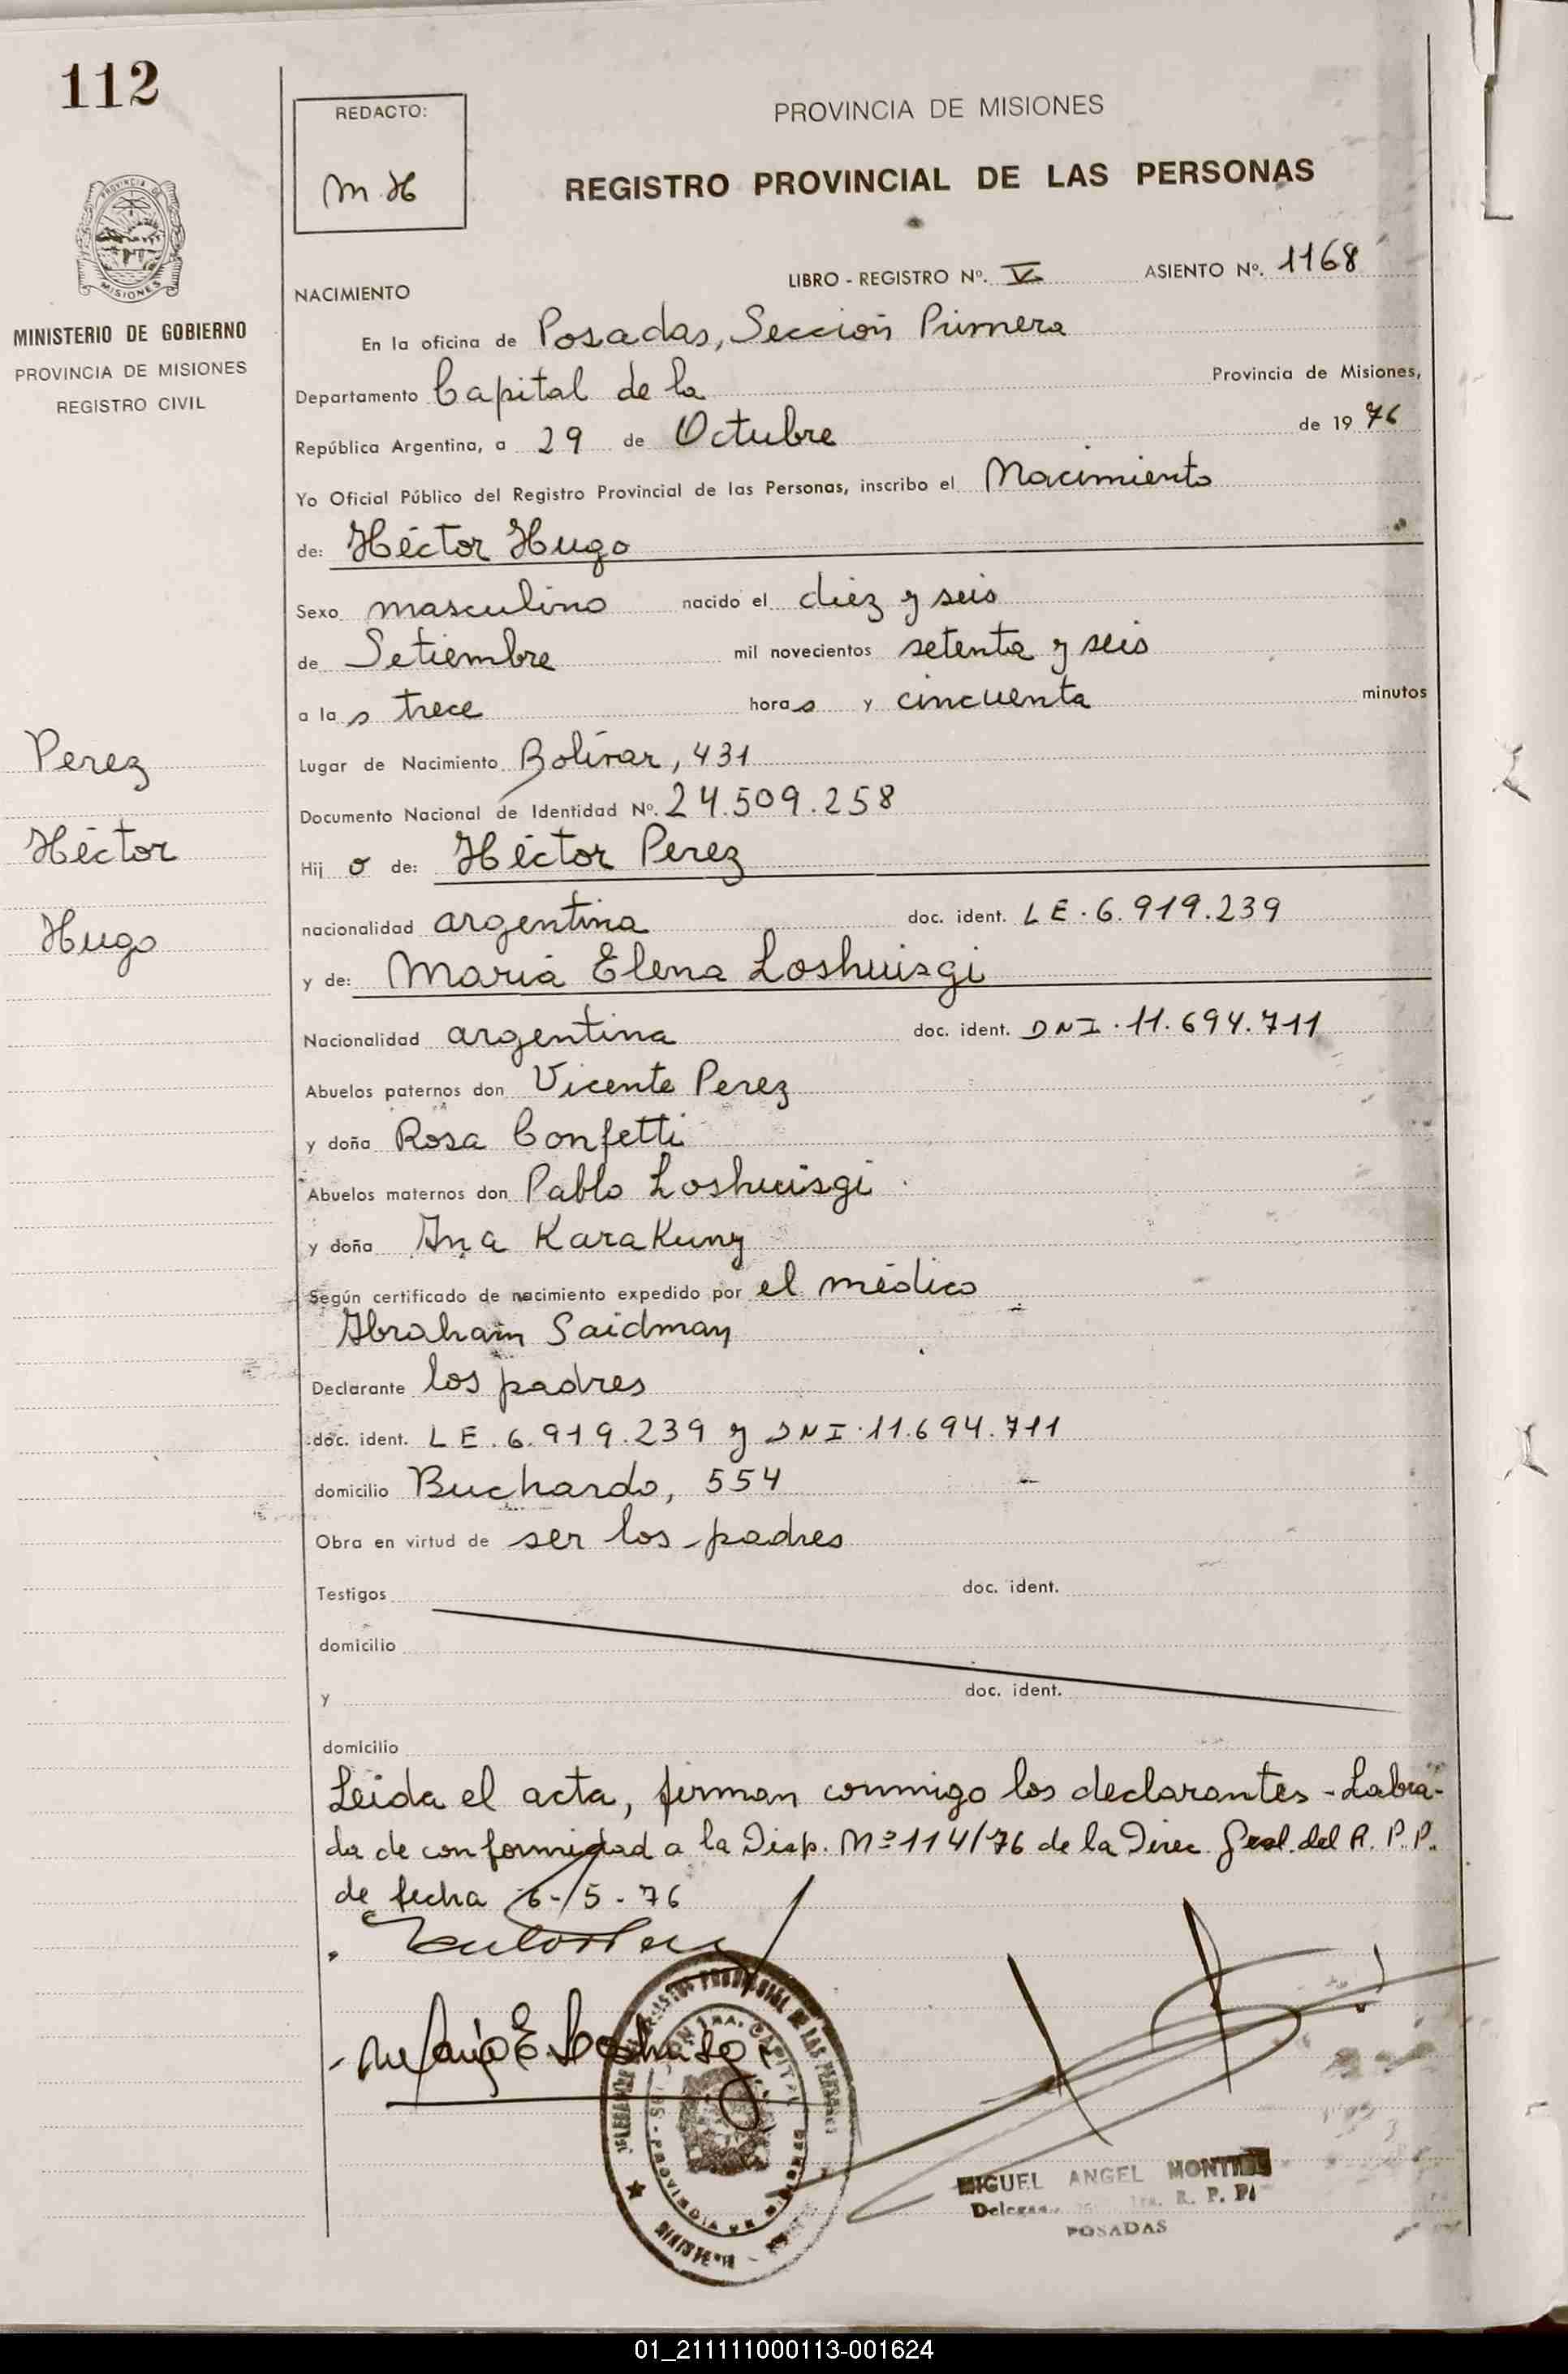 112
REDACTO:
M. H
PROVINCIA DE MISIONES
REGISTRO PROVINCIAL DE LAS PERSONAS
PROVINCIA DE
MISIONES
MINISTERIO DE GOBIERNO
PROVINCIA DE MISIONES
REGISTRO CIVIL
NACIMIENTO
LIBRO - REGISTRO Nº. V ASIENTO Nº. 1168
En la oficina de Posadas, Sección Primera
Departamento Capital de la Provincia de Misiones,
República Argentina, a 29 de Octubre de 1976
Yo Oficial Público del Registro Provincial de las Personas, inscribo el Nacimiento
de: Héctor Hugo
Sexo masculino nacido el diez y seis
de Setiembre mil novecientos setenta y seis
a las trece horas y cincuenta minutos
Perez
Héctor
Hugo
Lugar de Nacimiento Bolívar, 431
Documento Nacional de Identidad Nº. 24.509.258
Hijo de: Héctor Perez
nacionalidad argentina doc. ident. LE. 6.919.239
y de: María Elena Loshuisgi
Nacionalidad argentina doc. ident. DNI. 11.694.711
Abuelos paternos don Vicente Perez
y doña Rosa Confetti
Abuelos maternos don Pablo Loshuisgi
y doña Ana Karakuny
Según certificado de nacimiento expedido por el médico
Abraham Saidman
Declarante los padres
doc. ident. LE. 6.919.239 y DNI. 11.694.711
domicilio Buchardo, 554
Obra en virtud de ser los padres
Testigos doc. ident.
domicilio
y doc. ident.
domicilio
Leida el acta, firman conmigo los declarantes - Labra-
da de conformidad a la Disp. Nº 114/76 de la Direc. Gral. del R. P. P.
de fecha 6-5-76
MIGUEL ANGEL
R. P. P.
POSADAS
01_211111000113-001624